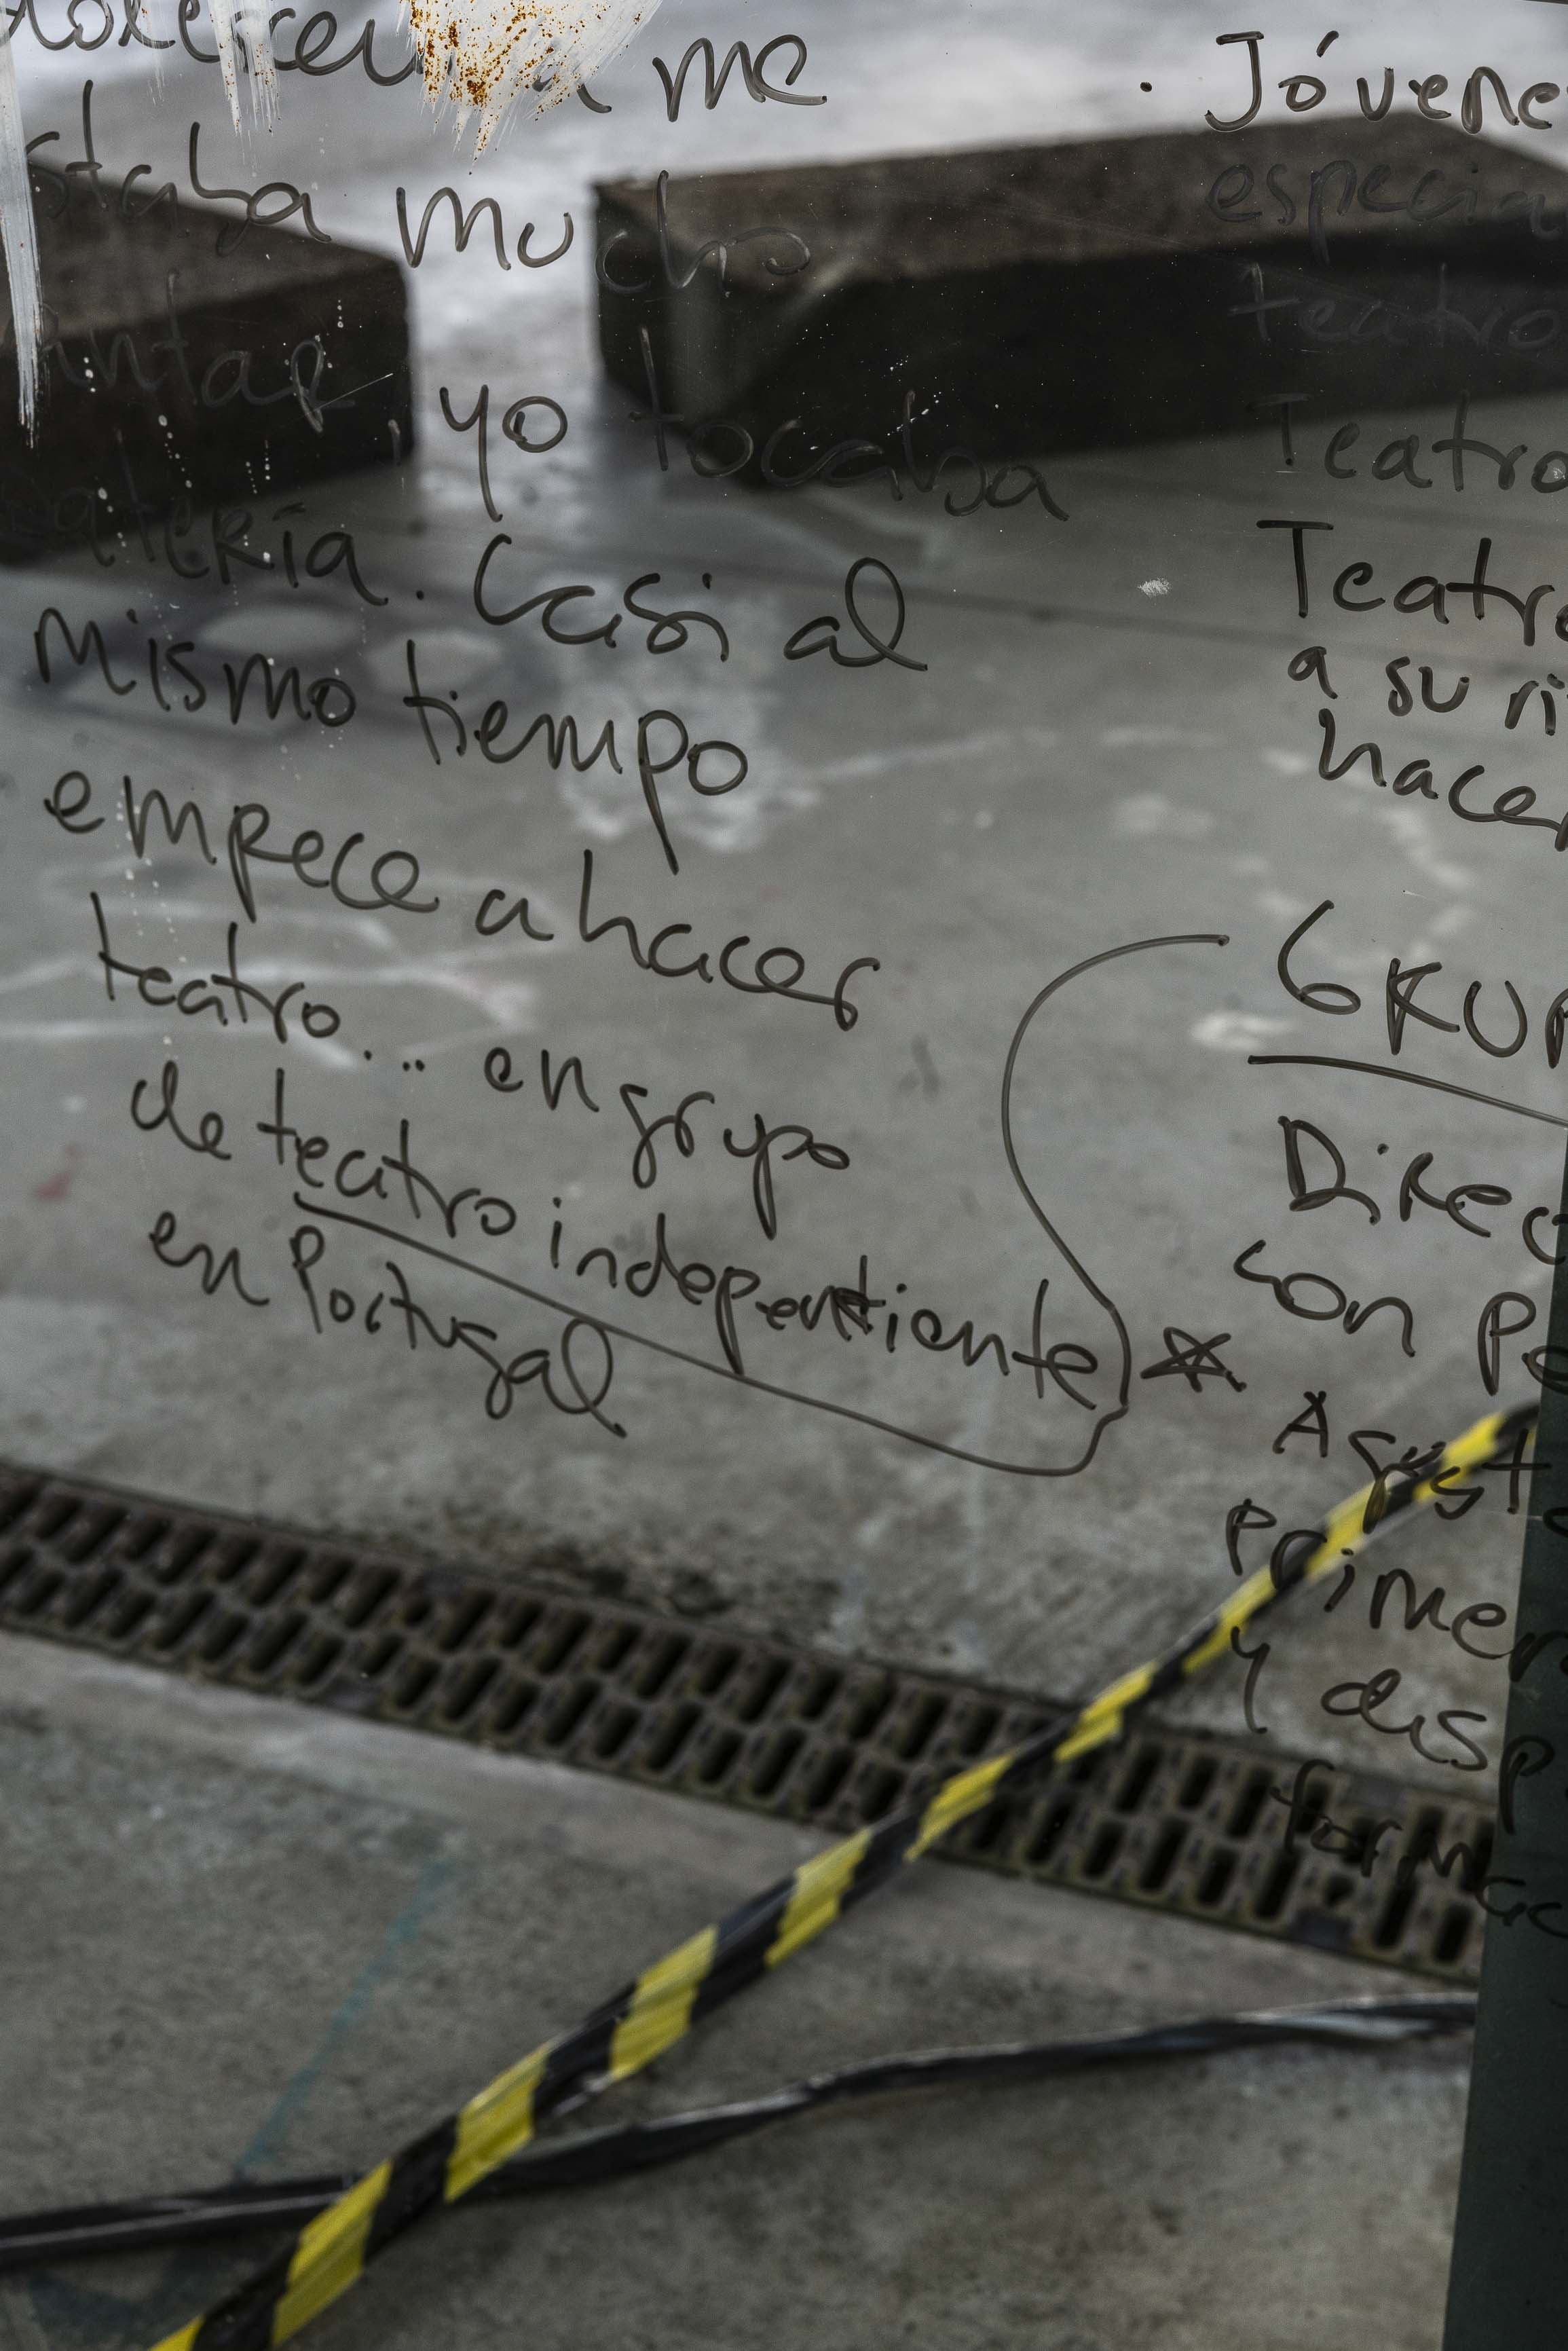 me
mucho
, yo tocaba
batería. Casi al
mismo tiempo
empece a hacer
teatro... en grupo
de teatro independiente
en Portugal
· Jóvene
especia
teatro
Teatro
Teatro
a su ri
hacer
Direc
son Pe
Agosto
primer
y desp
formac